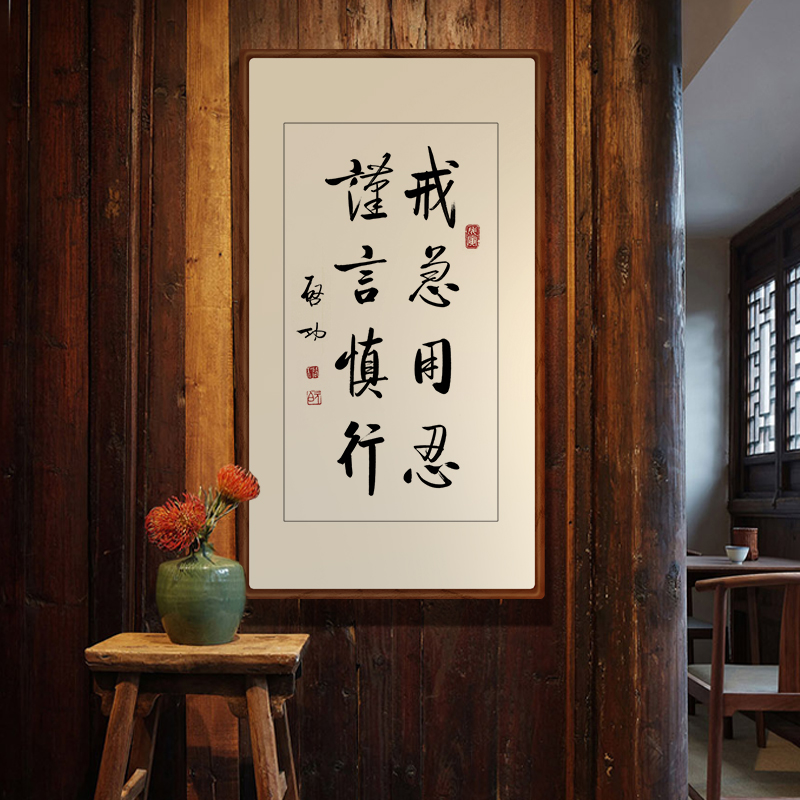 戒急用忍
謹言慎行
啓功